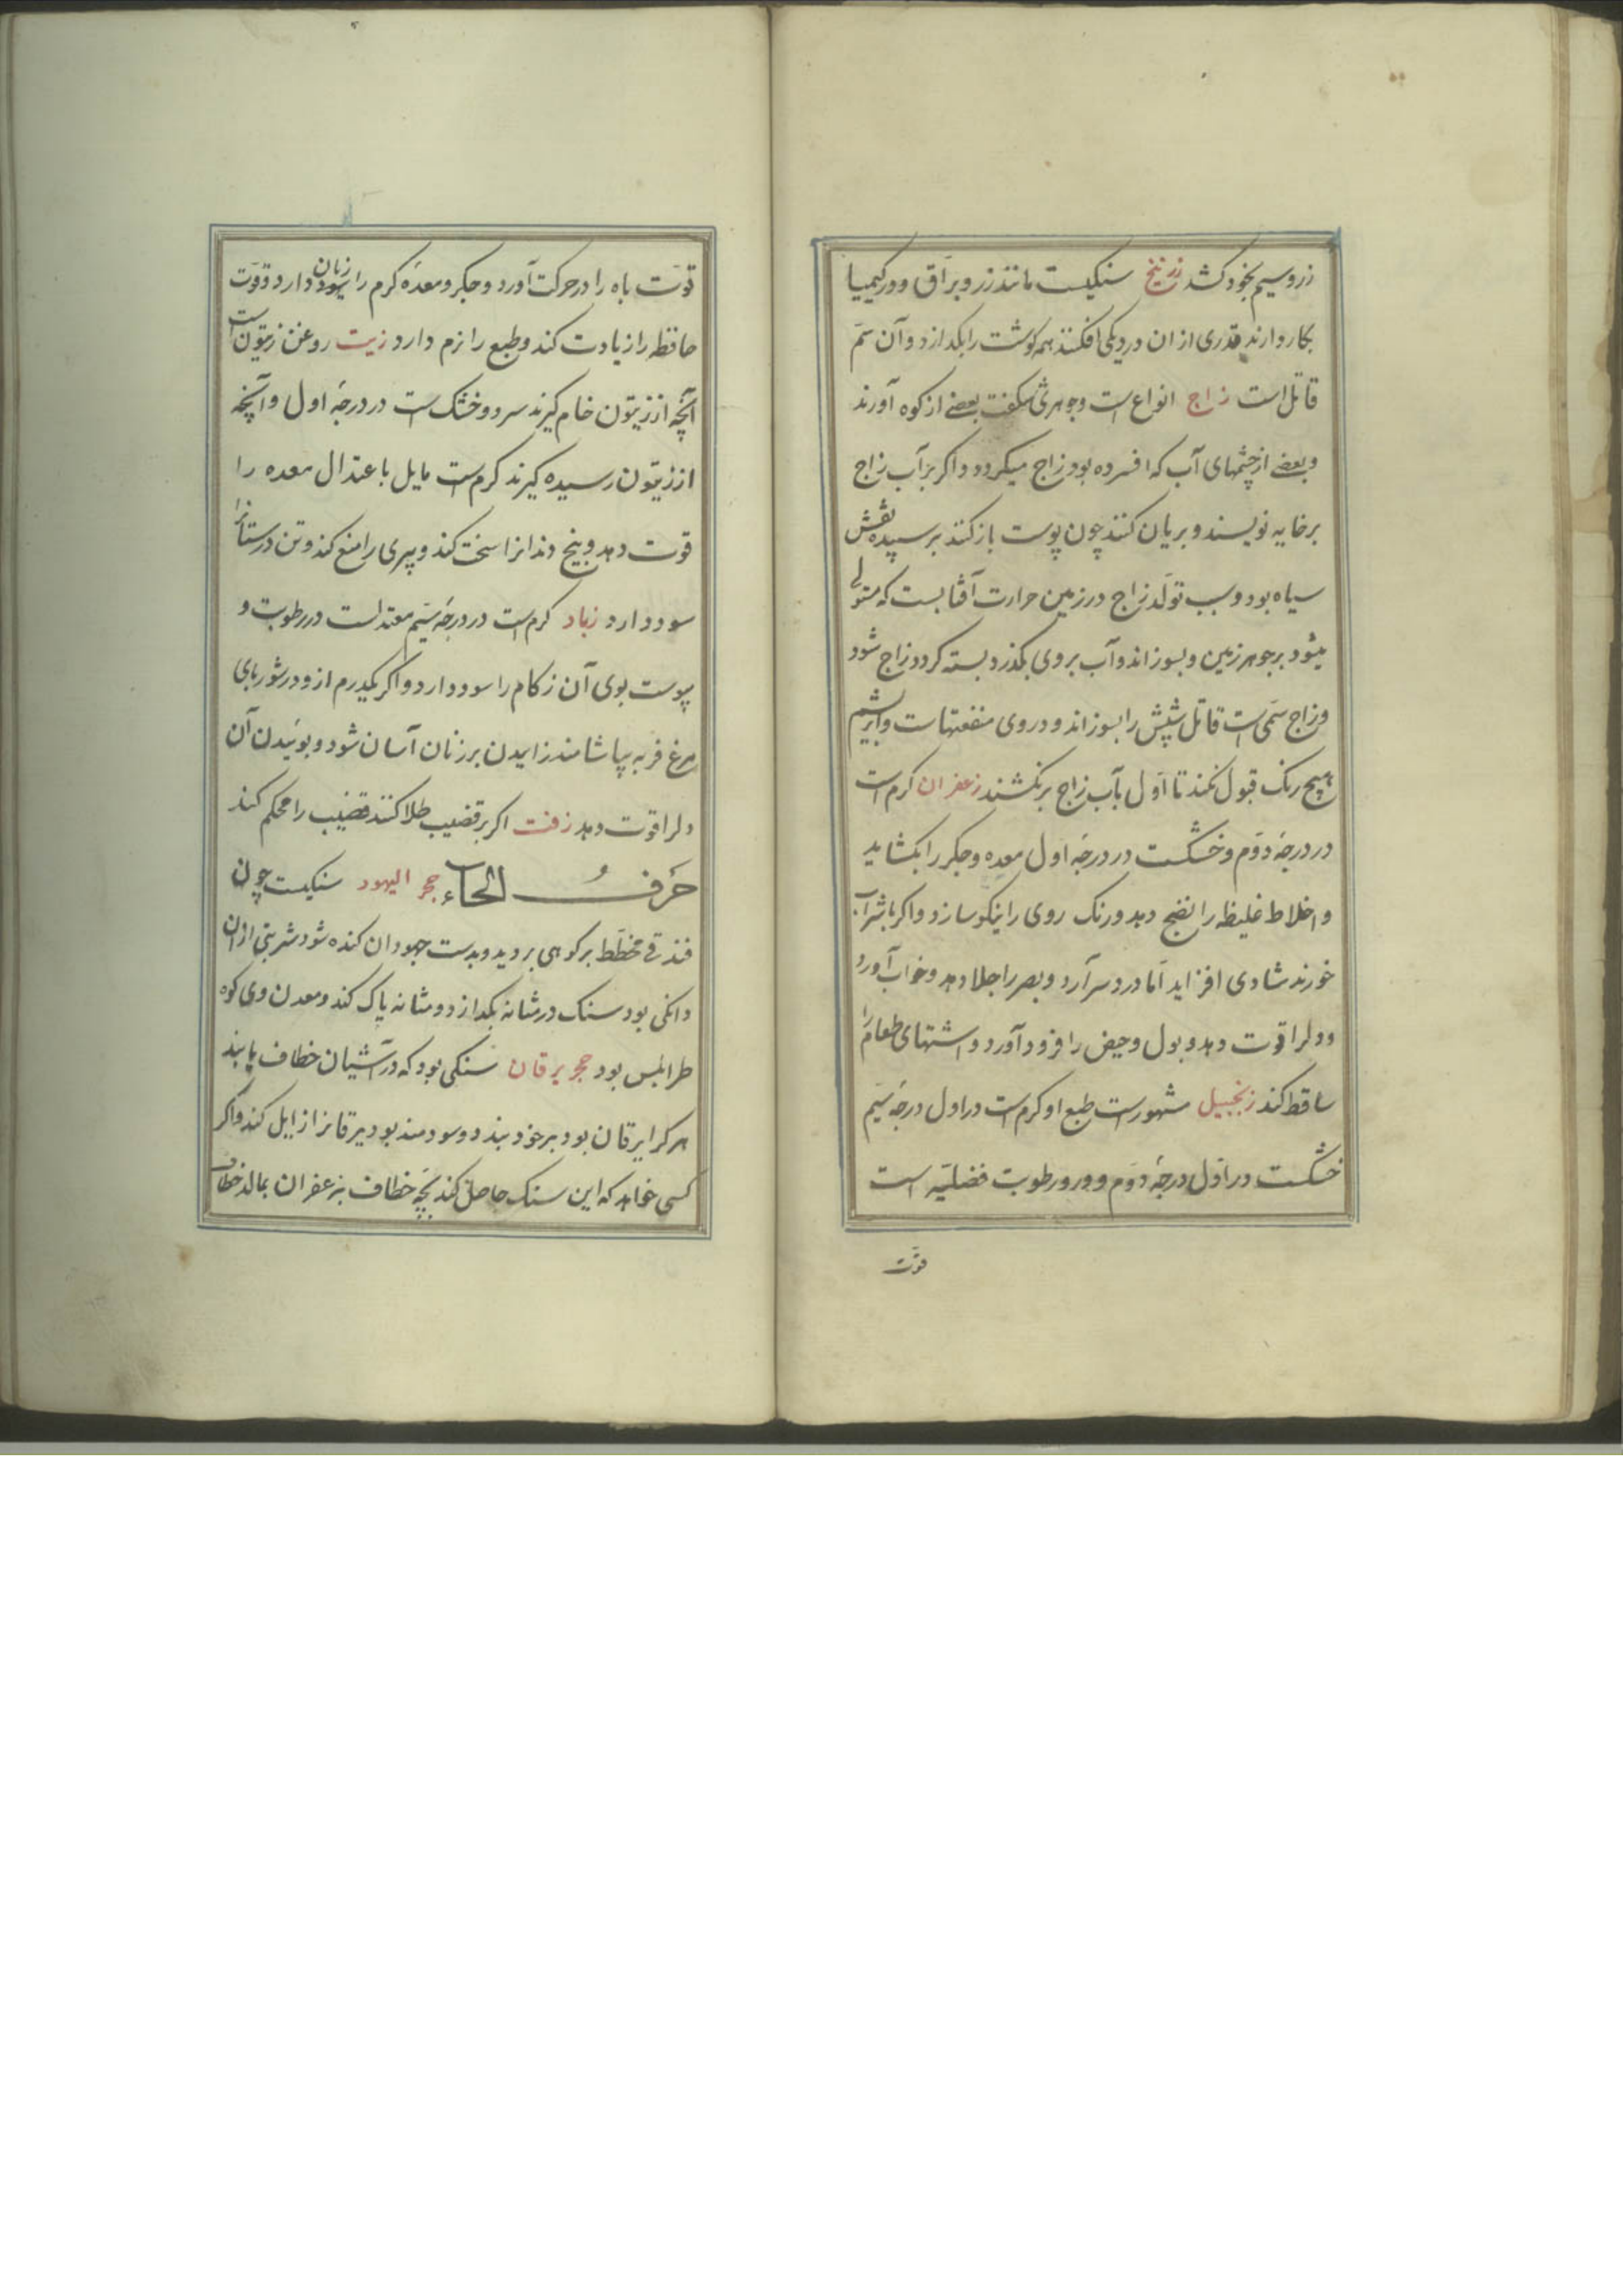 زر و سیم بخود کشد زرنیخ سنکیست مانند زر و براق و در کیمیا
بکار دارند قدری از ان در دیکی افکنند همه کوشت را بکدازد و آن سم
قاتل است زاج انواع است و جوهری شکفت بعضی از کوه آورند
و بعضی از چشمهای آب که افسرده بود زاج میکردد و اکر بر آب زاج
بر خایه نویسند و بریان کنند چون پوست باز کنند بر سپیده نقش
سیاه بود و سبب تولد زاج در زمین حرارت آفتابست که متولی
میشود بر جوهر زمین و بسوزاند و آب بر وی بکذرد بسته کردد زاج شود
و زاج سمی است قاتل شپش را بسوزاند و در وی منفعتهاست و ابریشم
هیچ رنک قبول نکند تا اول بآب زاج بر نکشند زعفران کرم است
در درجهٔ دوم و خشکست در درجهٔ اول معده و جکر را بکشاید
و اخلاط غلیظ را نضج دهد و رنک روی را نیکو سازد و اکر با شراب
خورند شادی افزاید اما درد سر آرد و بصر را جلا دهد و خواب آورد
و دلرا قوت دهد و بول و حیض را فرود آورد و اشتهای طعام را
ساقط کند زنجبیل مشهورست طبع او کرم است در اول درجهٔ سیم
خشکست در اول درجهٔ دوم و در و رطوبت فضلیه است
قوت
قوت باه را در حرکت آورد و جکر و معدهٔ کرم را زیان دارد و قوت
حافظه را زیادت کند و طبع را نرم دارد زیت روغن زیتون است
آنچه از زیتون خام کیرند سرد و خشک است در درجهٔ اول و آنچه
از زیتون رسیده کیرند کرم است مایل باعتدال معده را
قوت دهد و بیخ دندانرا سخت کند و پیری را منع کند و تن درستانرا
سود دارد زباد کرم است در درجهٔ سیم معتدلست در رطوبت و
یبوست بوی آن زکام را سود دارد و اکر یکدرم ازو در شوربای
مرغ فربه بیاشامند زاییدن بر زنان آسان شود و بوئیدن آن
دلرا قوت دهد زفت اکر بر قضیب طلا کنند قضیب را محکم کند
حرف الحاء حجر الیهود سنکیست چون
فندقی مخطط بر کوهی بروید و بدست جهودان کنده شود شربتی ازان
دانکی بود سنک در مثانه بکدازد و مثانه پاک کند و معدن وی کوه
طرابلس بود حجر یرقان سنکی بود که در آشیان خطاف یابند
هر کرا یرقان بود بر خود بندد و سودمند بود یرقانرا زایل کند و اکر
کسی خواهد که این سنک حاصل کند بچه خطاف بزعفران بمالد خطاف